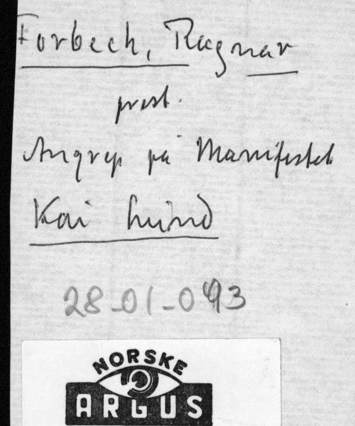 Forbech, Ragnar
prest.
Angrep på Manifestet
Kai Lund
28-01-093
NORSKE
ARGUS